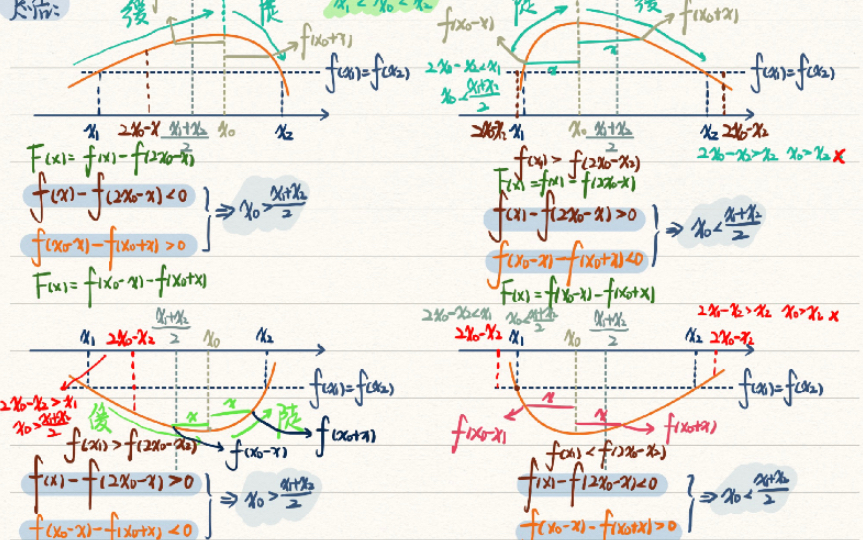 x₁ < x₀ < x₂
缓 陡
f(x₀+x)
f(x₁)=f(x₂)
x₁ 2x₀-x (x₁+x₂)/2 x₀ x₂
F(x) = f(x)-f(2x₀-x)
f(x)-f(2x₀-x)<0
f(x₀-x)-f(x₀+x)>0
⇒ x₀>(x₁+x₂)/2
F(x) = f(x₀-x)-f(x₀+x)
f(x₀-x) 陡 缓 f(x₀+x)
x x
2x₀-x₂<x₁
x₀<(x₁+x₂)/2
f(x₁)=f(x₂)
2x₀-x₂ x₁ x₀ (x₁+x₂)/2 x₂ 2x₀-x₂
2x₀-x₂>x₂ x₀>x₂ x
f(x₁) > f(2x₀-x₂)
F(x) = f(x) = f(2x₀-x)
f(x)-f(2x₀-x)>0
f(x₀-x)-f(x₀+x)<0
⇒ x₀<(x₁+x₂)/2
F(x) = f(x₀-x)-f(x₀+x)
x₁ 2x₀-x₂ (x₁+x₂)/2 x₀ x₂
f(x₁)=f(x₂)
2x₀-x₂>x₁
x₀>(x₁+x₂)/2
缓 x x 陡
f(x₀-x) f(x₀+x)
f(x₁)>f(2x₀-x₂)
f(x)-f(2x₀-x)>0
f(x₀-x)-f(x₀+x)<0
⇒ x₀>(x₁+x₂)/2
2x₀-x₂<x₁ x₀<(x₁+x₂)/2
2x₀-x₂>x₂ x₀>x₂ x
2x₀-x₂ x₁ x₀ (x₁+x₂)/2 x₂ 2x₀-x₂
f(x₁)=f(x₂)
x x
f(x₀-x) f(x₀+x)
f(x₁)<f(2x₀-x₂)
f(x)-f(2x₀-x)<0
f(x₀-x)-f(x₀+x)>0
⇒ x₀<(x₁+x₂)/2